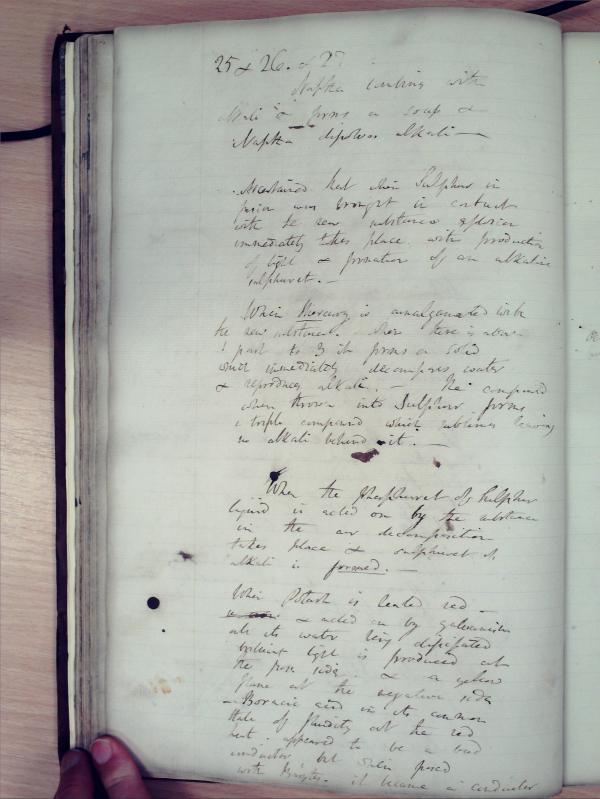 25 & 26. & 27
Naptha uniting with
alkali forms a soap &
Naptha dissolves alkali —
Ascertained that when Sulphur in
fusion was brought in contact
with the new substance explosion
immediately takes place, with production
of light & formation of an alkaline
sulphuret. —
When Mercury is amalgamated with
the new substance. when there is about
1 part to 3 it forms a solid
which immediately decomposes water
& reproduces alkali. — The compound
when thrown into Sulphur forms
a triple compound which sublimes leaving
no alkali behind it. —
When the phosphuret of Sulphur
liquid is acted on by the substance
in the air decomposition
takes place & sulphuret of
alkali is formed. —
When Potash is heated red —
& acted on by galvanism
all its water being dissipated
brilliant light is produced at
the pos. side. & a yellow
flame at the negative side
— Boracic acid in its common
state of fluidity at the red
heat. appeared to be a bad
conductor but when fused
with it became a conductor